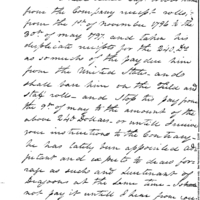 from the Company receipt rolls,
from the 1st of November 1796 to the
30th of may 1797. and taken his
duplicate receipts for the 240. Ds
as so much of the pay due him
from the United States. and
shall carry him on the field and
staff roll and stop his pay from
the 1st of may to the amount of the
above 240 Dollars. or until I receive
your instructions to the Contrary.
he has lately been appointed ad-
jutant and expects to draw for-
rage as such and Lieutenant of
Dragoons at the same time. I shall
not pay it until I hear from you